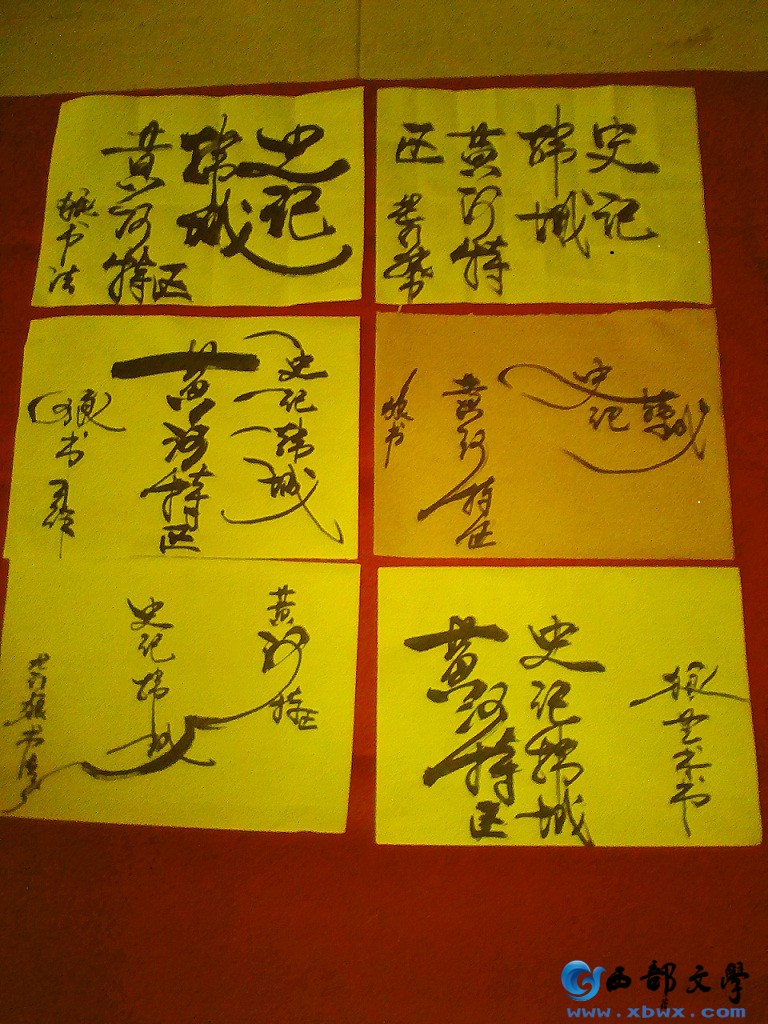 史记
韩城
黄河特区
狼书法
史记
韩城
黄河特
区
史记韩城
黄河特区
狼书
史记韩城
黄河特区
狼书
黄河特区
史记韩城
狼书法
狼艺术书
史记韩城
黄河特区
西部文學
www.xbwx.com